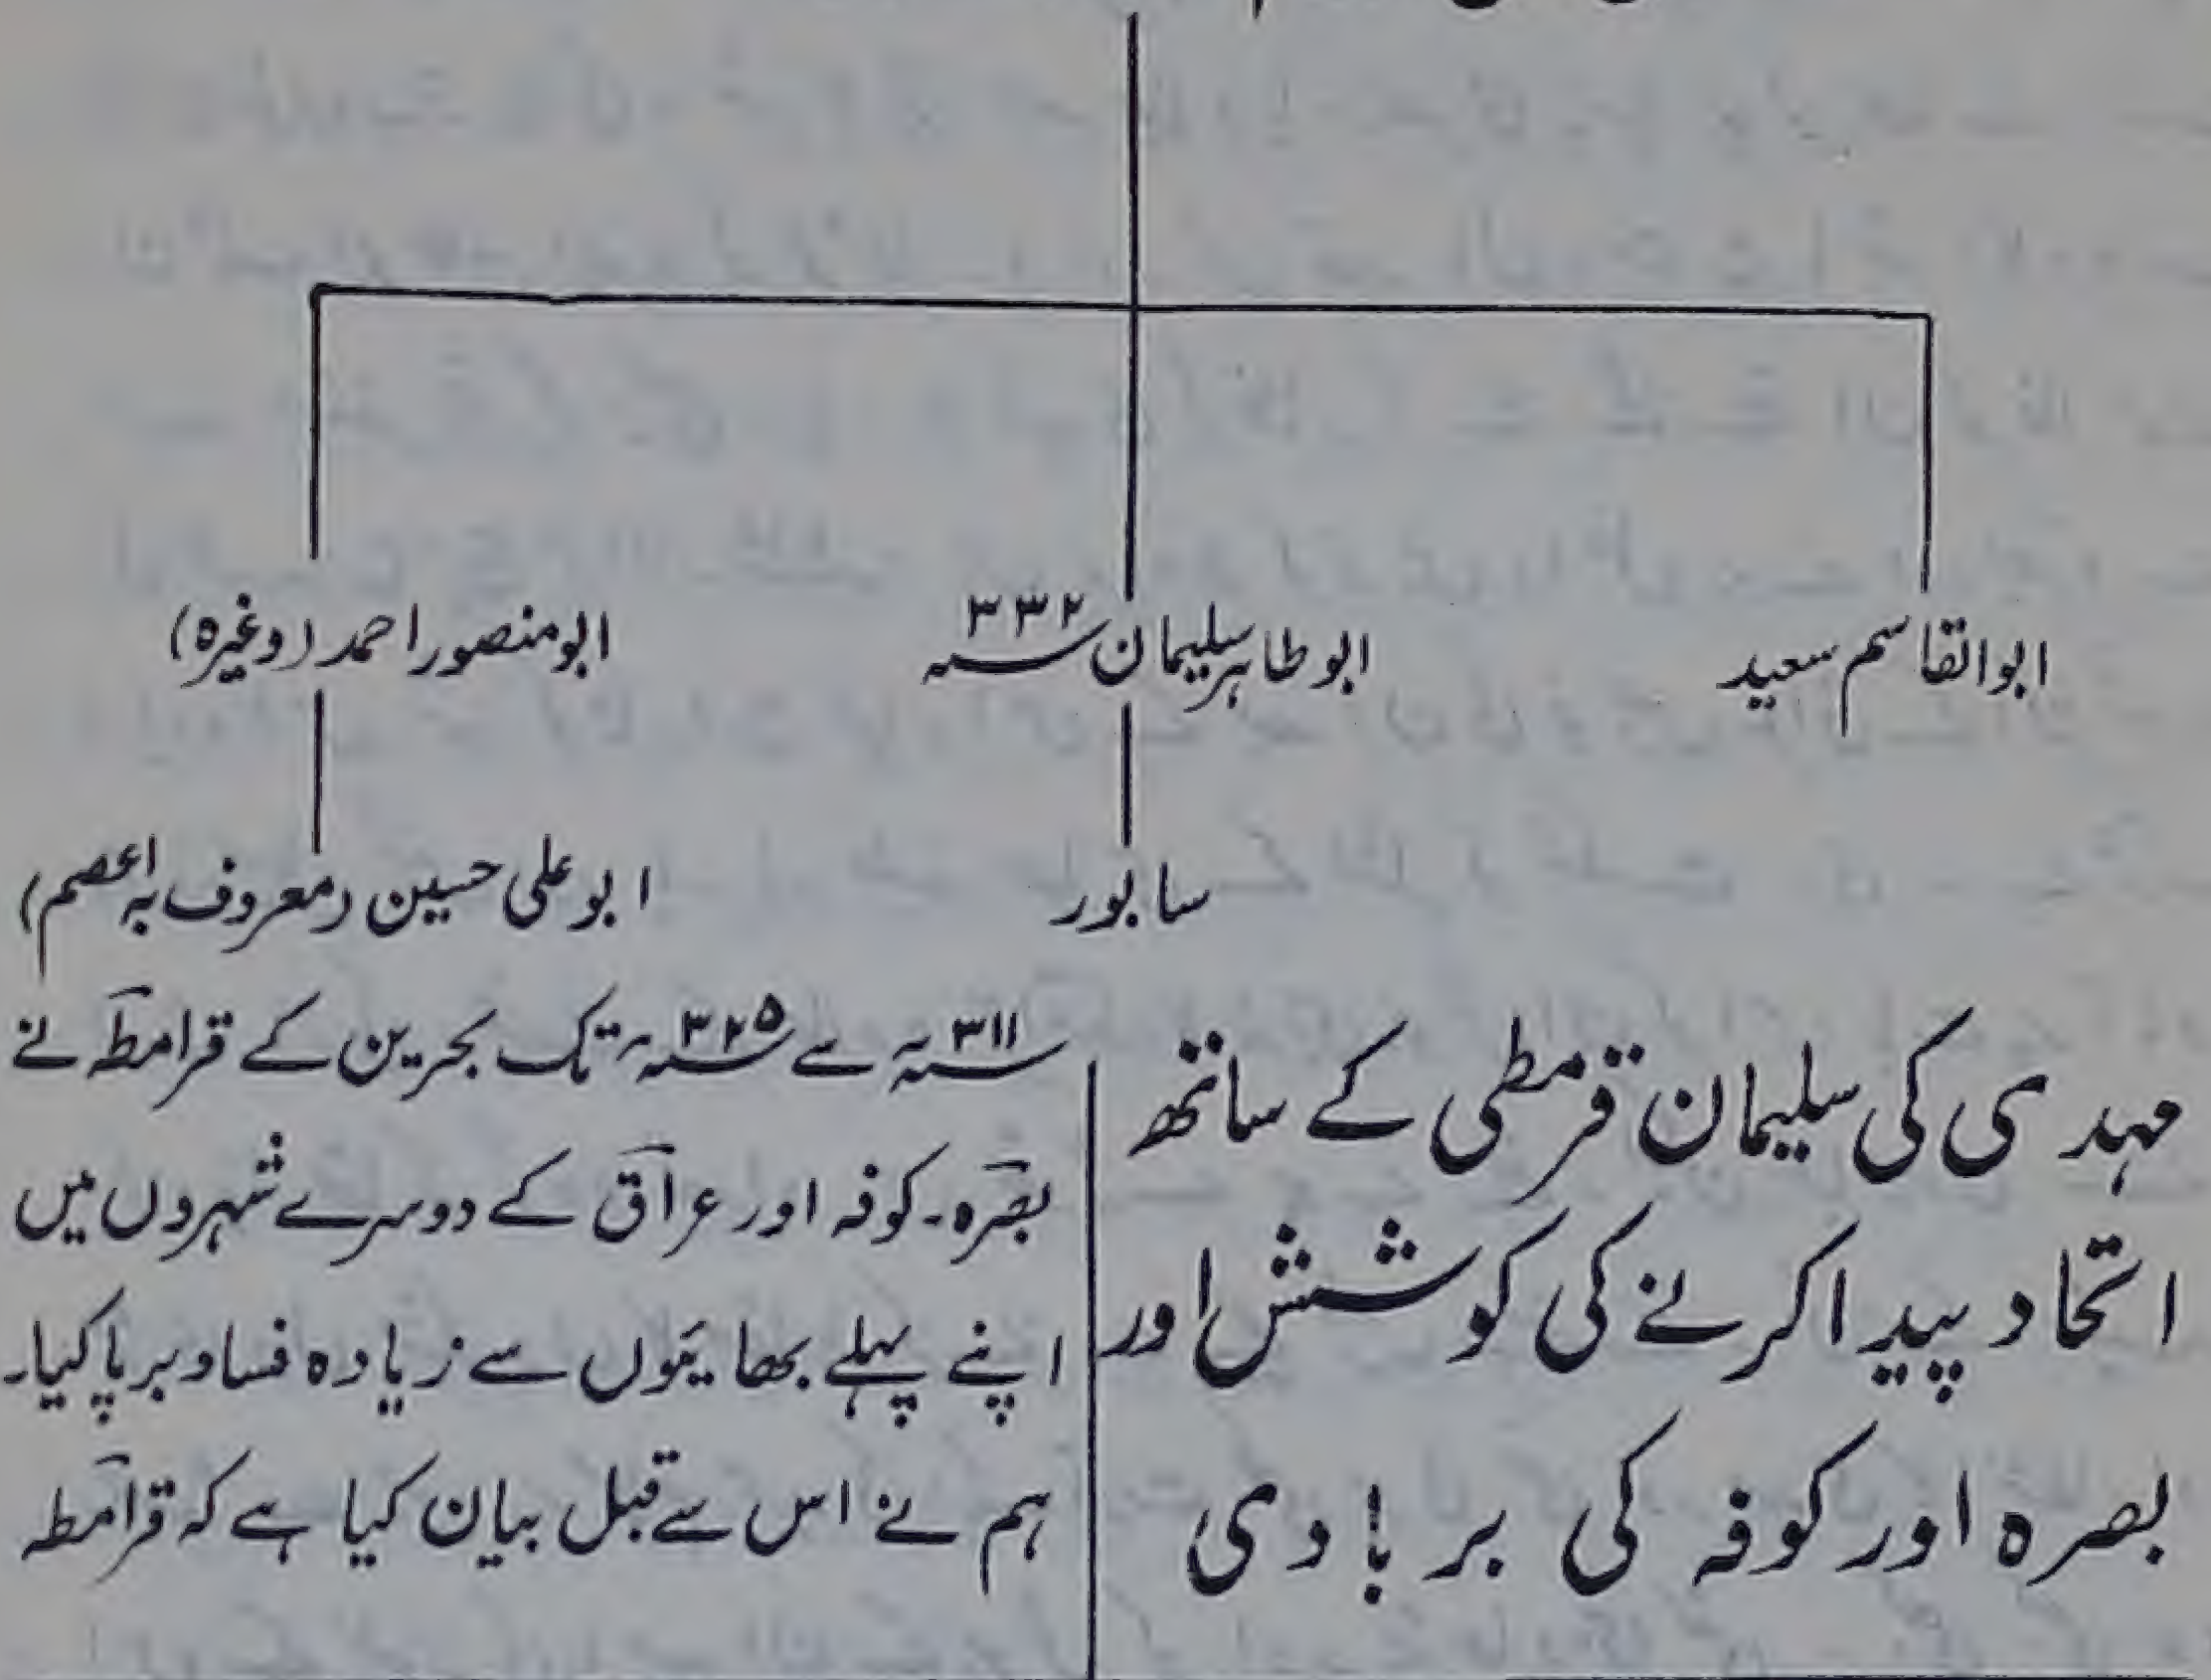 ابوالقاسم سعید
ابو طاہر سلیمان ۳۳۲ سنہ
ابو منصور احمد (وغیرہ)
سابور
ابو علی حسین (معروف بہ اعصم)
مہدی کی سلیمان قرمطی کے ساتھ
اتحاد پیدا کرنے کی کوشش اور
بصرہ اور کوفہ کی بربادی
۳۱۱ سنہ سے ۳۲۵ سنہ تک بحرین کے قرامطہ نے
بصرہ۔ کوفہ اور عراق کے دوسرے شہروں میں
اپنے پہلے بھائیوں سے زیادہ فساد برپا کیا۔
ہم نے اس سے قبل بیان کیا ہے کہ قرامطہ